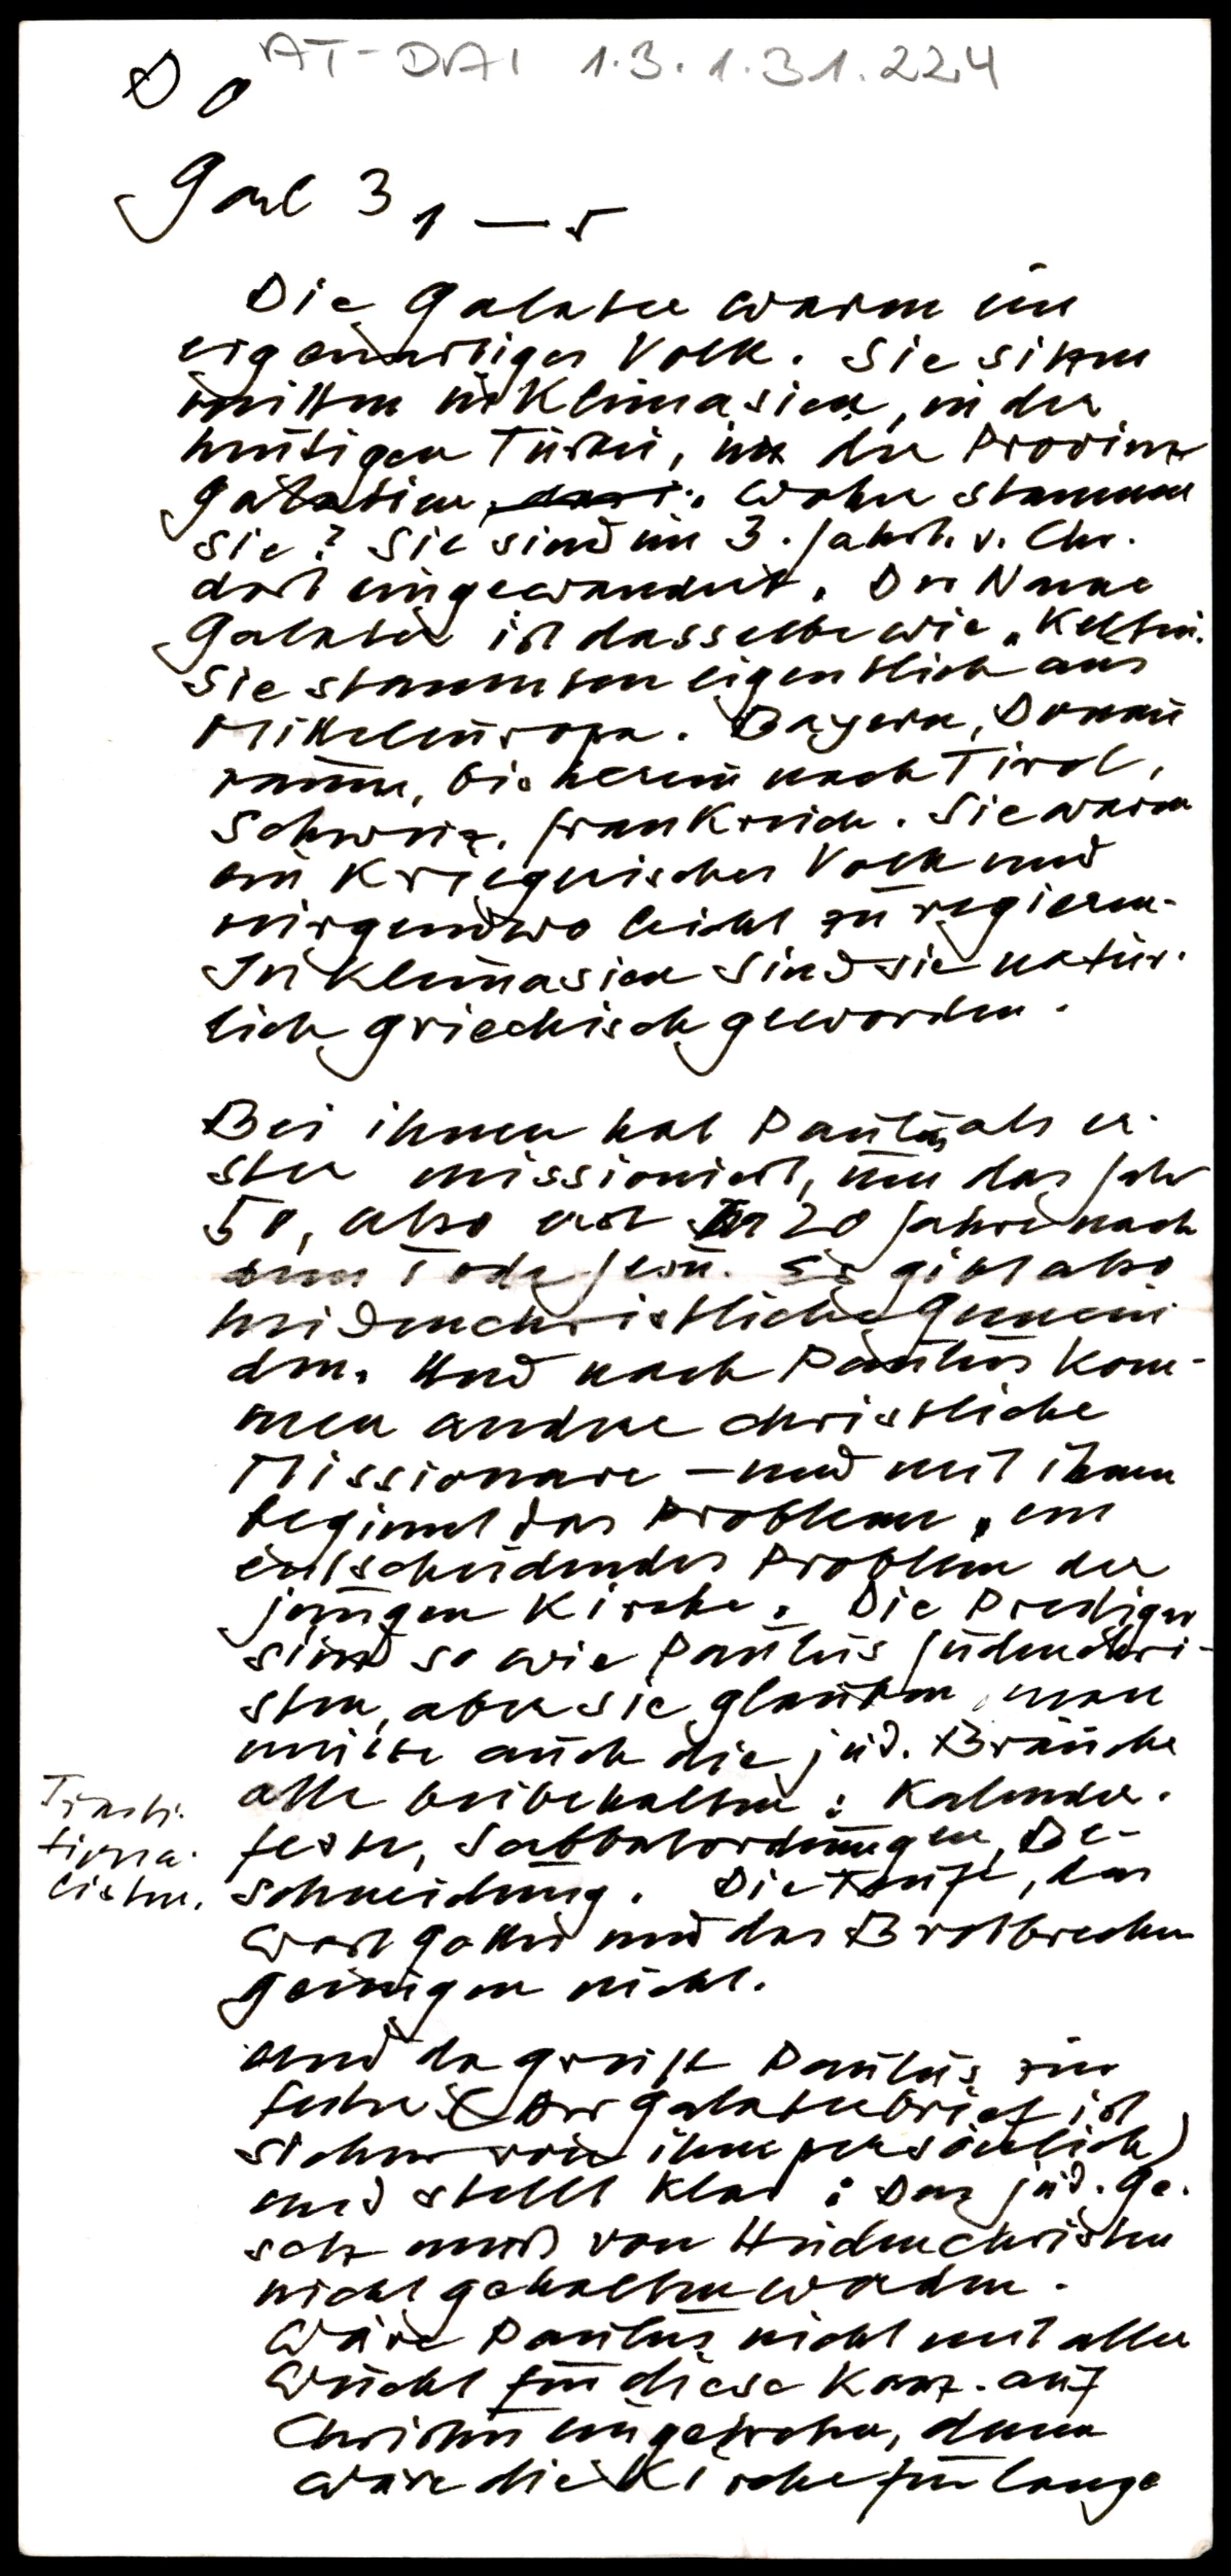 AT-DAI 1.3.1.31.224
Do
Gal 3 1 — 5
Die Galater waren ein
eigenartiges Volk. Sie sitzen
mitten in Kleinasien, in der
heutigen Türkei, in der Provinz
Galatien. Woher stammen
sie? Sie sind im 3. Jahrh. v. Chr.
dort eingewandert. Der Name
Galater ist dasselbe wie „Kelten".
Sie stammten eigentlich aus
Mitteleuropa. Bayern, Donau
raum, bis herein nach Tirol,
Schweiz, Frankreich. Sie waren
ein kriegerisches Volk und
nirgendwo leicht zu regieren.
In Kleinasien sind sie natür-
lich griechisch geworden.
Bei ihnen hat Paulus als er-
ster missioniert, um das Jahr
50, also erst 20 Jahre nach
dem Tode Jesu. Es gibt also
heidenchristliche Gemein
den. Und nach Paulus kom-
men andere christliche
Missionare – und mit ihnen
beginnt das Problem, ein
entscheidendes Problem der
jungen Kirche. Die Prediger
sind so wie Paulus Judenchri-
sten, aber sie glauben, man
müsse auch die jüd. Bräuche
alle beibehalten: Kalender-
feste, Sabbatordnungen, Be-
schneidung. Die Taufe, das
Wort Gottes und das Brotbrechen
genügen nicht.
Traditi-
tiona-
listen.
Und da greift Paulus zur
Feder (der Galaterbrief ist
sicher von ihm persönlich)
und stellt klar: Das jüd. Ge-
setz muß von Heidenchristen
nicht gehalten werden.
Wäre Paulus nicht mit aller
Wucht für diese Konz. auf
Christus eingetreten, dann
wäre die Kirche für lange